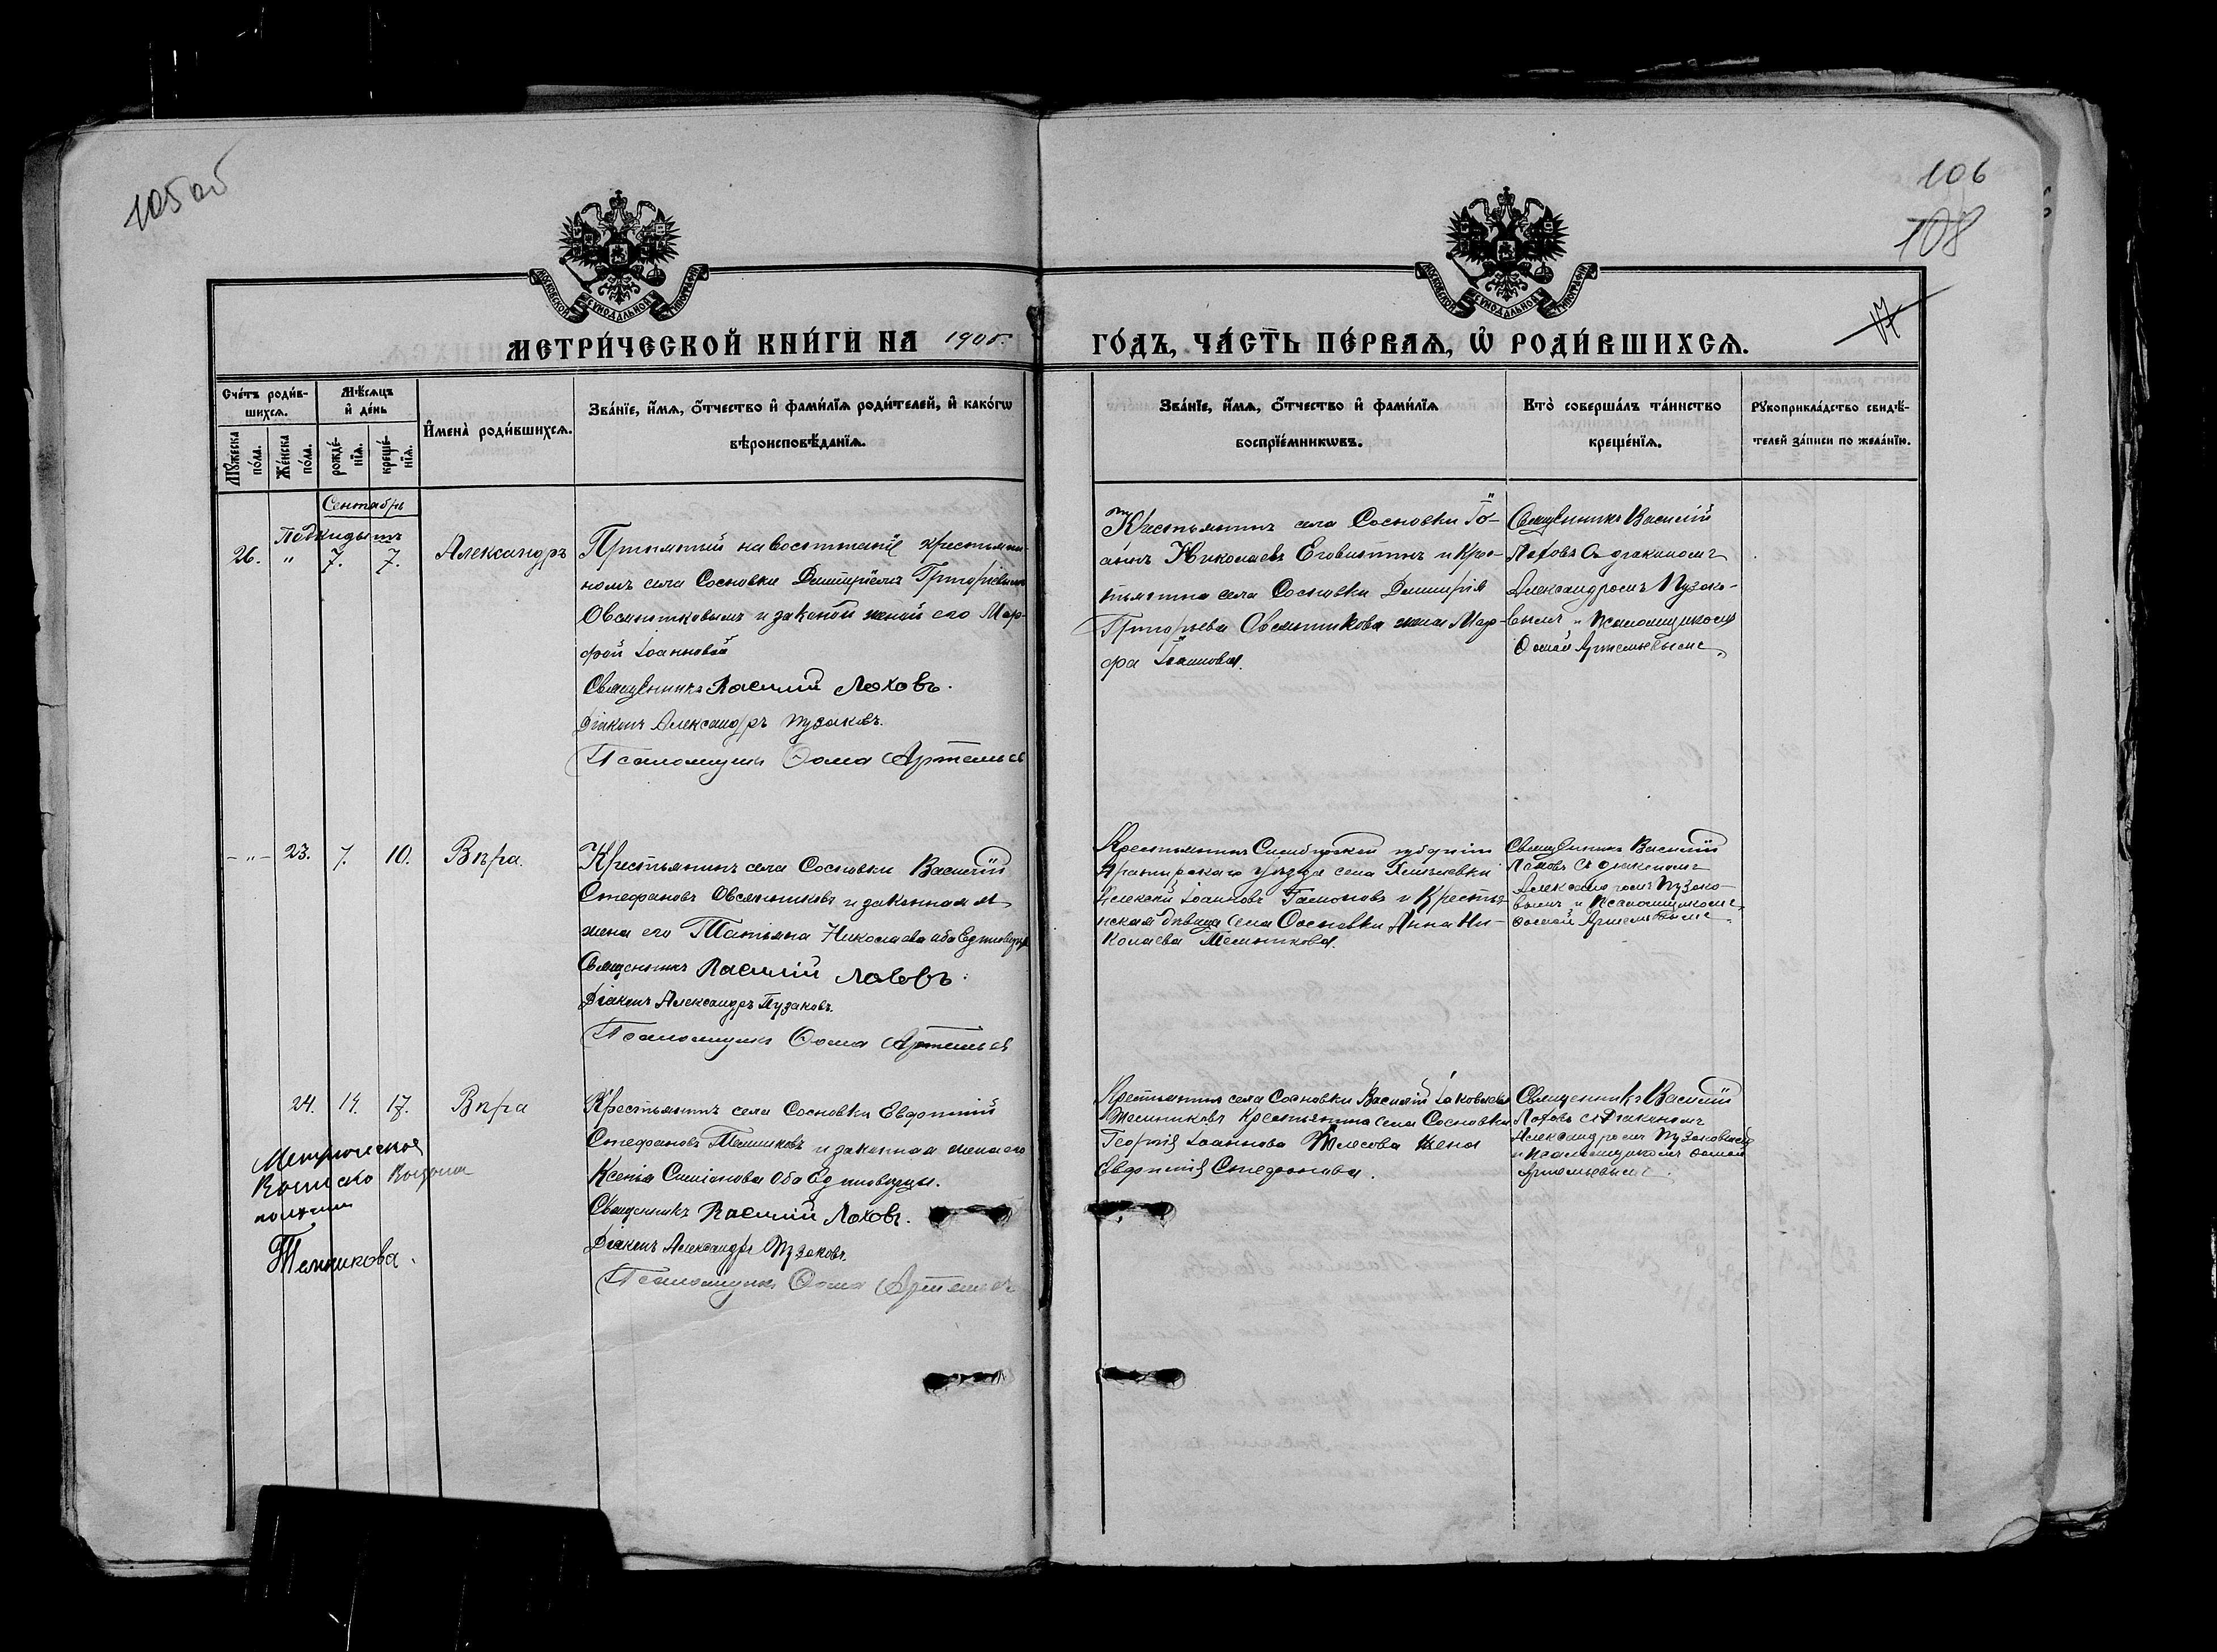 105 об
106
108
17
МОСКОВСКОЙ СѴНОДАЛЬНОЙ ТИПОГРАФІИ
МОСКОВСКОЙ СѴНОДАЛЬНОЙ ТИПОГРАФІИ
МЕТРИ́ЧЕСКОЙ КНИ́ГИ НА 1900 г.
ГО́ДЪ, ЧА́СТЬ ПЕ́РВАѦ, Ѡ҆ РОДИ́ВШИХСѦ.
Сче́тъ роди́в-
шихсѧ.
Мꙋ́жеска
по́ла.
Же́нска
по́ла.
Мѣ́сѧцъ
и҆ де́нь
рожде́-
нїѧ.
креще́-
нїѧ.
И҆мена̀ роди́вшихсѧ.
Зва́нїе, и҆́мѧ, ѻ҆́тчество и҆ фами́лїѧ роди́телей, и҆ како́гѡ
вѣроисповѣ́данїѧ.
Зва́нїе, и҆́мѧ, ѻ҆́тчество и҆ фами́лїѧ
воспрїе́мникѡвъ.
Кто̀ соверша́лъ та́инство
креще́нїѧ.
Рꙋкоприкла́дство свидѣ́-
телей за́писи по жела́нїю.
Сентябрь
Подкидышъ
26. " 7. 7. Александръ
Принятый на воспитаніе крестьяни-
номъ села Сосновки Димитріемъ Григорьевымъ
Овсянниковымъ и законой женой его Мар-
фой Іоанновой
Священникъ Василій Лаховъ.
Діаконъ Александръ Пузаковъ.
Псаломщикъ Ѳома Артемьевъ
Крестьянинъ села Сосновки Іо-
аннъ Николаевъ и Кре-
стьянина села Сосновки Димитрія
Григорьева Овсянникова жена Мар-
фа Іоаннова.
Священникъ Василій
Лаховъ съ діакономъ
Александромъ Пузако-
вымъ и Псаломщикомъ
Ѳомой Артемьевымъ
- " - 23. 7. 10. Вѣра.
Крестьянинъ села Сосновки Василій
Стефановъ Овсянниковъ и законная
жена его Татьяна Николаева оба Единовѣрцы
Священникъ Василій Лаховъ.
Діаконъ Александръ Пузаковъ.
Псаломщикъ Ѳома Артемьевъ
Крестьянинъ Симбирской губерніи
уѣзда села
Алексѣй Іоанновъ и Крестья-
нская дѣвица села Сосновки Анна Ни-
колаева
Священникъ Василій
Лаховъ съ діакономъ
Александромъ Пузако-
вымъ и Псаломщикомъ
Ѳомой Артемьевымъ
24. 14. 17. Вѣра
Крестьянинъ села Сосновки Евфимій
Стефановъ и законная жена его
Ксенія Симіонова Оба Единовѣрцы.
Священникъ Василій Лаховъ.
Діаконъ Александръ Пузаковъ.
Псаломщикъ Ѳома Артемьевъ
Крестьянинъ села Сосновки Василій Іаковлевъ
Крестьянина села Сосновки
Георгія Іоаннова жена
Евфимія Стефанова.
Священникъ Василій
Лаховъ съ Діакономъ
Александромъ Пузаковымъ
и Псаломщикомъ Ѳомой
Артемьевымъ.
Метрическое